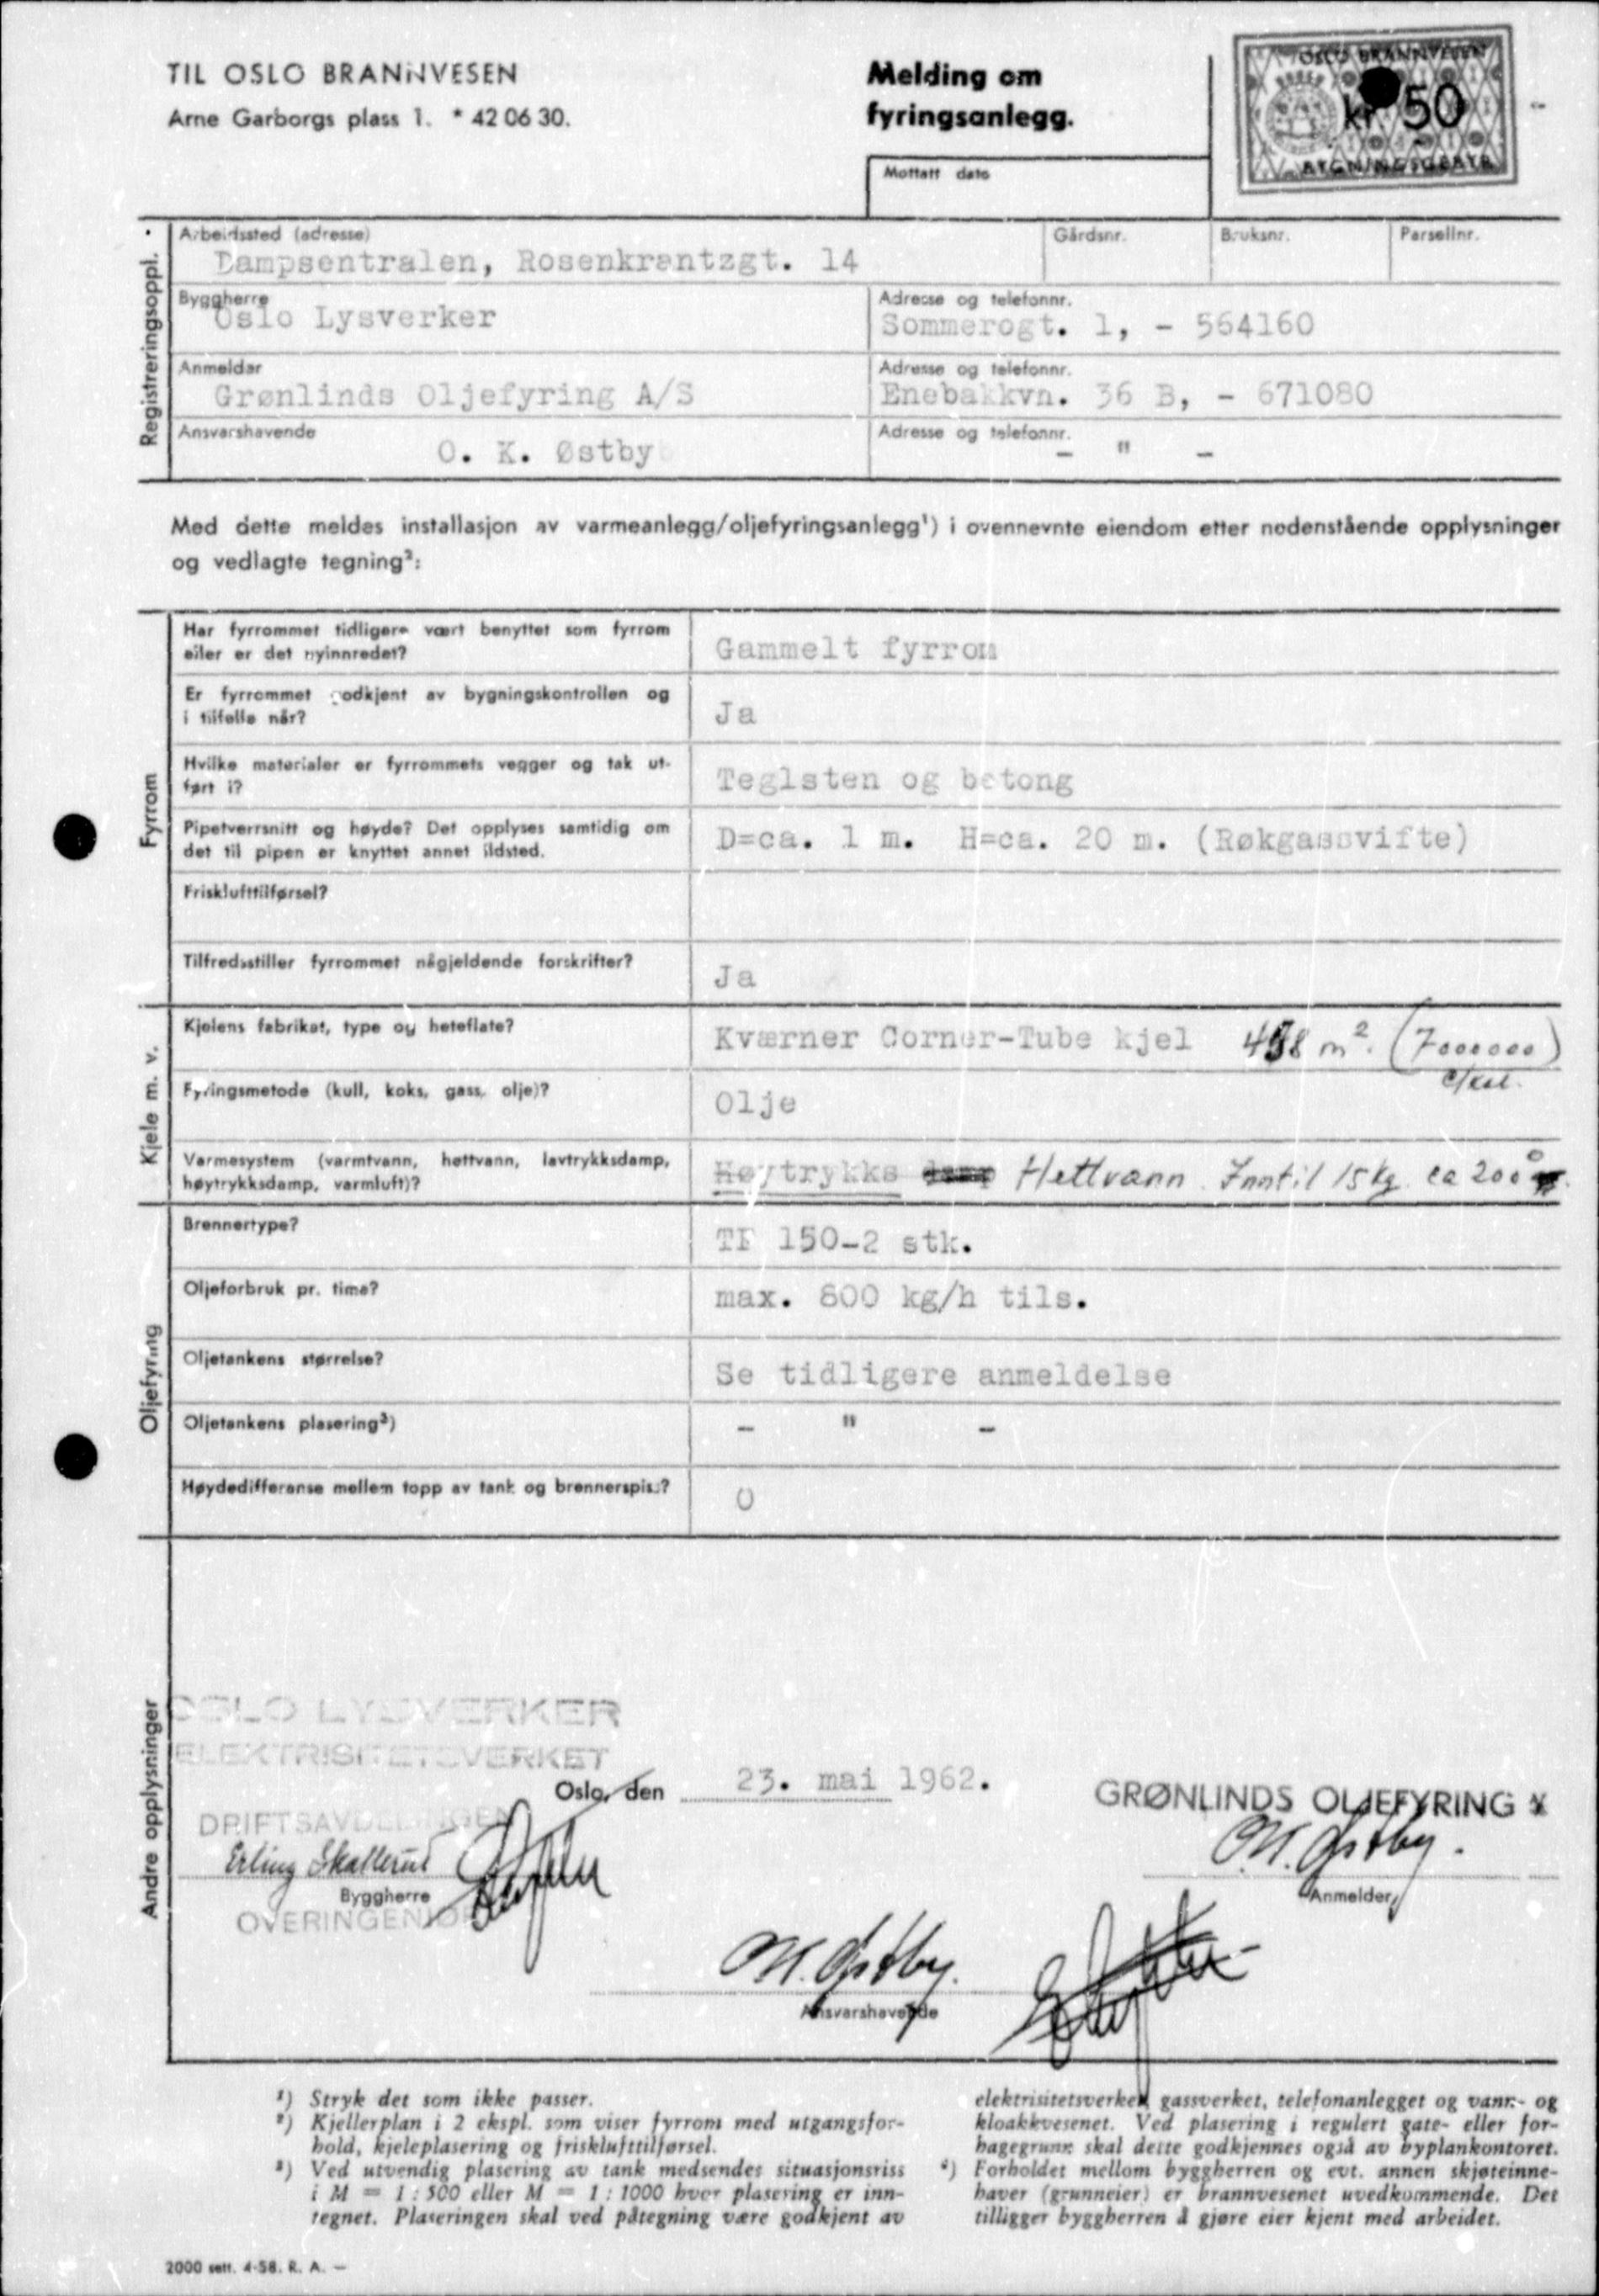 TIL OSLO BRANNVESEN
Arne Garborgs plass 1. * 42 06 30.
Melding om
fyringsanlegg.
OSLO BRANNVESEN
kr 50
Mottatt dato
Registreringsoppl.
Arbeidssted (adresse)
Dampsentralen, Rosenkrantzgt. 14
Gårdsnr.
Bruksnr.
Parsellnr.
Byggherre
Oslo Lysverker
Adresse og telefonnr.
Sommerogt. 1, - 564160
Anmelder
Grønlinds Oljefyring A/S
Adresse og telefonnr.
Enebakkvn. 36 B, - 671080
Ansvarshavende
O. K. Østby
Adresse og telefonnr.
- " -
Med dette meldes installasjon av varmeanlegg/oljefyringsanlegg¹) i ovennevnte eiendom etter nedenstående opplysninger
og vedlagte tegning²:
Fyrrom
Har fyrrommet tidligere vært benyttet som fyrrom
eller er det nyinnredet?
Gammelt fyrrom
Er fyrrommet godkjent av bygningskontrollen og
i tilfelle når?
Ja
Hvilke materialer er fyrrommets vegger og tak ut-
ført i?
Teglsten og betong
Pipetverrsnitt og høyde? Det opplyses samtidig om
det til pipen er knyttet annet ildsted.
D=ca. 1 m. H=ca. 20 m. (Røkgassvifte)
Frisklufttilførsel?
Tilfredsstiller fyrrommet någjeldende forskrifter?
Ja
Kjele m. v.
Kjelens fabrikat, type og heteflate?
Kværner Corner-Tube kjel m². (7000000)
Fyringsmetode (kull, koks, gass, olje)?
Olje
Varmesystem (varmtvann, hettvann, lavtrykksdamp,
høytrykksdamp, varmluft)?
Høytrykks damp Hettvann. Inntil 15 kg. ca 200°
Oljefyring
Brennertype?
TF 150-2 stk.
Oljeforbruk pr. time?
max. 800 kg/h tils.
Oljetankens størrelse?
Se tidligere anmeldelse
Oljetankens plasering³)
- " -
Høydedifferanse mellem topp av tank og brennerspiss?
0
Andre opplysninger
OSLO LYSVERKER
ELEKTRISITETSVERKET
Oslo, den 23. mai 1962.
GRØNLINDS OLJEFYRING
DRIFTSAVDELINGEN
Erling Skallerud
M. Østby.
Byggherre
Anmelder
OVERINGENIØR
M. Østby.
Ansvarshavende
¹) Stryk det som ikke passer.
²) Kjellerplan i 2 ekspl. som viser fyrrom med utgangsfor-
hold, kjeleplasering og frisklufttilførsel.
³) Ved utvendig plasering av tank medsendes situasjonsriss
i M = 1 : 500 eller M = 1 : 1000 hvor plasering er inn-
tegnet. Plaseringen skal ved påtegning være godkjent av
elektrisitetsverket, gassverket, telefonanlegget og vann- og
kloakkvesenet. Ved plasering i regulert gate- eller for-
hagegrunn skal dette godkjennes også av byplankontoret.
⁴) Forholdet mellom byggherren og evt. annen skjøteinne-
haver (grunneier) er brannvesenet uvedkommende. Det
tilligger byggherren å gjøre eier kjent med arbeidet.
2000 sett. 4-58. R. A. —